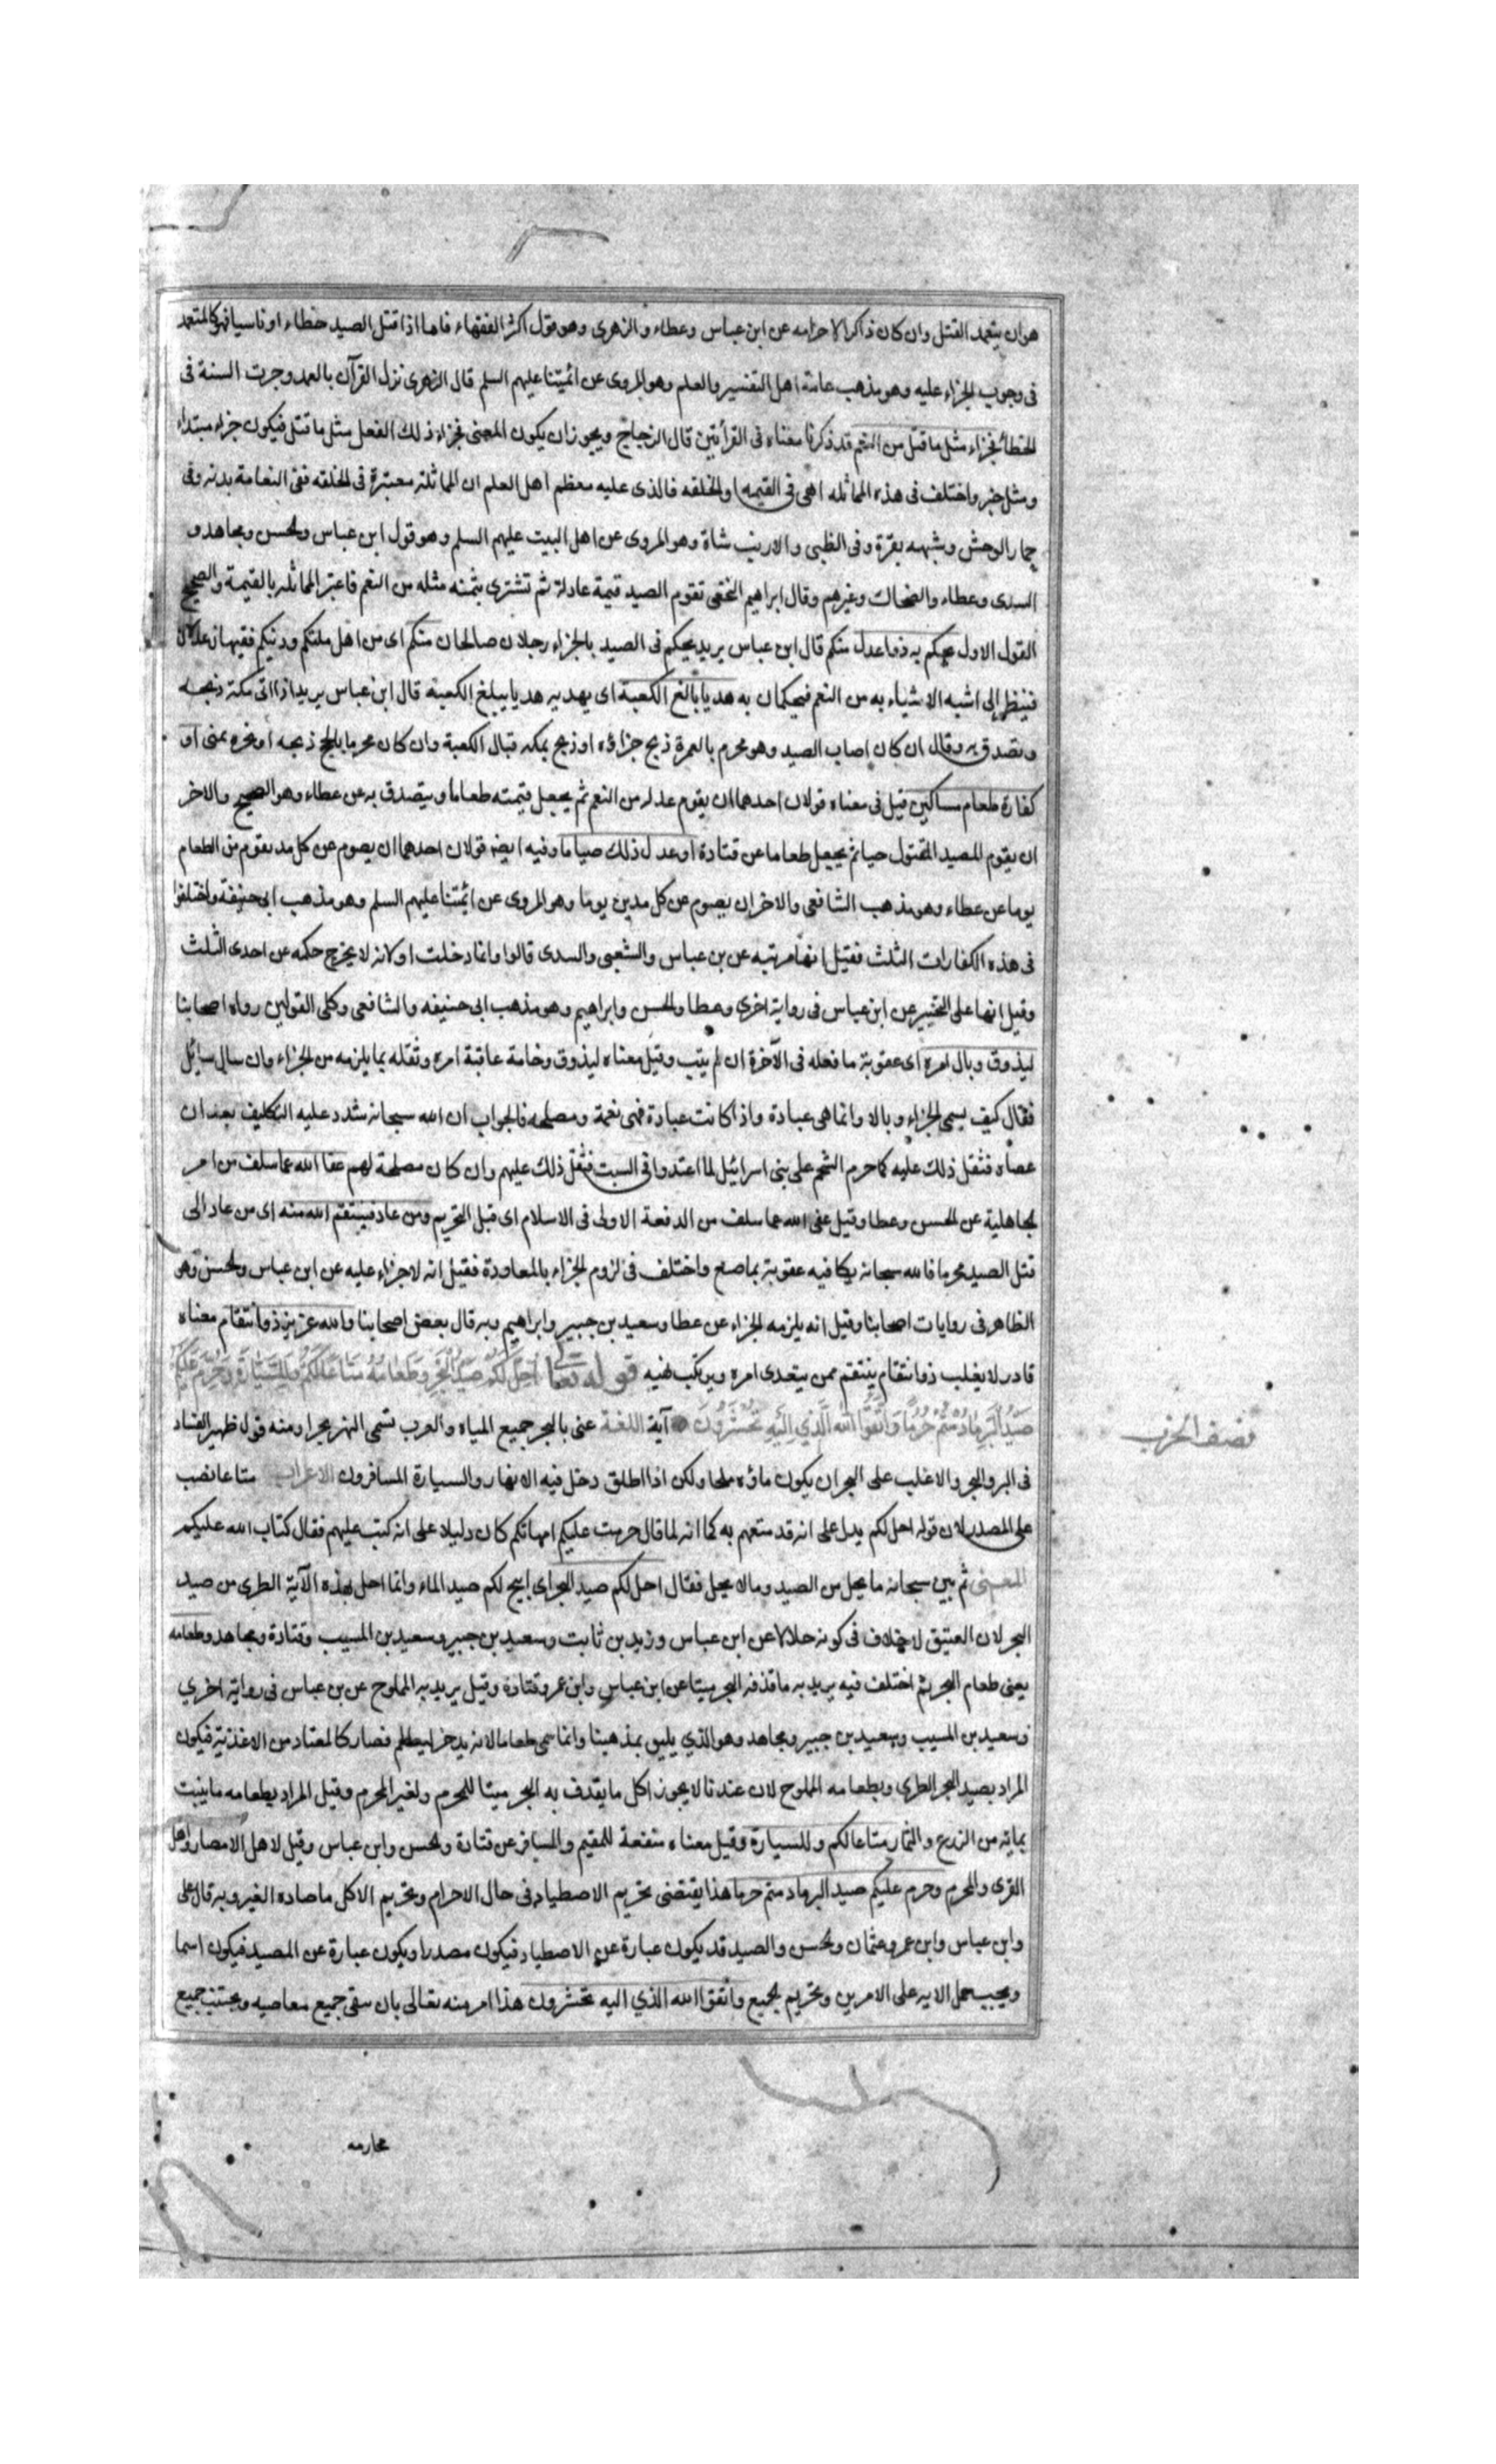 هو ان يتعمد القتل وان كان ذاكرا لاحرامه عن ابن عباس وعطاء والزهرى وهو قول اكثر الفقهاء فاما اذا قتل الصيد خطاء او ناسيا فهو كالمتعمد
فى وجوب الجزاء عليه وهو مذهب عامة اهل التفسير والعلم وهو المروى عن ائمتنا عليهم السلم قال الزهرى نزل القرآن بالعمد وجرت السنة فى
الخطأ فجزاء مثل ما قتل من النعم قد ذكرنا معناه فى القرأتين قال الزجاج ويجوز ان يكون المعنى فجزاء ذلك الفعل مثل ما قتل فيكون جزاء مبتداء
ومثل خبر واختلف فى هذه المماثله اهى فى القيمه او الخلقه فالذى عليه معظم اهل العلم ان المماثلة معتبرة فى الخلقه ففى النعامة بدنه وفى
حمار الوحش وشبهه بقرة وفى الظبى والارنب شاة وهو المروى عن اهل البيت عليهم السلم وهو قول ابن عباس والحسن ومجاهد و
السدى وعطاء والضحاك وغيرهم وقال ابراهيم النخعى تقوم الصيد قيمة عادلة ثم تشترى بثمنه مثله من النعم فاعتبر المماثله بالقيمة والصحيح
القول الاول يحكم به ذوا عدل منكم قال ابن عباس يريد يحكم فى الصيد بالجزاء رجلان صالحان منكم اى من اهل ملتكم ودينكم فقيهان عدلان
فينظر إلى اشبه الاشياء به من النعم فيحكمان به هديا بالغ الكعبة اى يهديه هديا يبلغ الكعبة قال ابن عباس يريد اذا اتى مكة ذبحه
وتصدق به وقال ان كان اصاب الصيد وهو محرم بالعمرة ذبح جزاؤه او ذبح بمكه قبال الكعبة وان كان محرما بالحج ذبحه او نحره بمنى او
كفارة طعام مساكين قيل فى معناه قولان احدهما ان يقوم عدله من النعم ثم يجعل قيمته طعاما ويتصدق به عن عطاء وهو الصحيح والاخر
ان يقوم الصيد المقتول حيا ثم يجعل طعاما عن قتادة او عدل ذلك صياما وفيه ايضا قولان احدهما ان يصوم عن كل مد يقوم من الطعام
يوما عن عطاء وهو مذهب الشافعى والاخر ان يصوم عن كل مدين يوما وهو المروى عن ائمتنا عليهم السلم وهو مذهب ابى حنيفة واختلفوا
فى هذه الكفارات الثلث فقيل انها مرتبه عن بن عباس والشعبى والسدى قالوا وانما دخلت او لانه لا يخرج حكمه عن احدى الثلث
وقيل انها على التخيير عن ابن عباس فى رواية اخرى وعطا والحسن وابراهيم وهو مذهب ابى حنيفه والشافعى وكلى القولين رواه اصحابنا
ليذوق وبال امره اى عقوبة ما فعله فى الآخرة ان لم يتب وقيل معناه ليذوق وخامة عاقبة امره وثقله بما يلزمه من الجزاء وان سال سائل
فقال كيف يسمى الجزاء وبالا وانما هى عبادة واذا كانت عبادة فهى نعمة ومصلحه فالجواب ان الله سبحانه شدد عليه التكليف بعد ان
عصاه فثقل ذلك عليه كما حرم الشحم على بنى اسرائيل لما اعتدوا فى السبت فثقل ذلك عليهم وان كان مصلحة لهم عفا الله عما سلف من امر
الجاهلية عن الحسن وعطا وقيل عفى الله عما سلف من الدفعة الاولى فى الاسلام اى قبل التحريم ومن عاد فينتقم الله منه اى من عاد الى
قتل الصيد محرما فالله سبحانه يكافيه عقوبة بما صنع واختلف فى لزوم الجزاء بالمعاودة فقيل انه لا جزاء عليه عن ابن عباس والحسن وهو
الظاهر فى روايات اصحابنا وقيل انه يلزمه الجزاء عن عطا وسعيد بن جبير وابراهيم وبه قال بعض اصحابنا والله عزيز ذو انتقام معناه
قادر لا يغلب ذو انتقام ينتقم ممن يتعدى امره ويرتكب نهيه قوله تعالى احل لكم صيد البحر وطعامه متاعا لكم وللسيارة وحرم عليكم
صيد البر ما دمتم حرما واتقوا الله الذي اليه تحشرون آية اللغة عنى بالبحر جميع المياه والعرب تسمى النهر بحرا ومنه قوله ظهر الفساد
فى البر والبحر والاغلب على البحر ان يكون ماؤه ملحا ولكن اذا اطلق دخل فيه الانهار والسيارة المسافرون الاعراب متاعا نصب
على المصدر لان قوله احل لكم يدل على انه قد متعهم به كما انه لما قال حرمت عليكم امهاتكم كان دليلا على انه كتب عليهم فقال كتاب الله عليكم
المعنى ثم بين سبحانه ما يحل من الصيد وما لا يحل فقال احل لكم صيد البحر اى ابيح لكم صيد الماء وانما احل بهذه الآية الطرى من صيد
البحر لان العتيق لا خلاف فى كونه حلالا عن ابن عباس وزيد بن ثابت وسعيد بن جبير وسعيد بن المسيب وقتادة ومجاهد وطعامه
يعنى طعام البحر ثم اختلف فيه يريد به ما قذفه البحر ميتا عن ابن عباس وابن عمر وقتادة وقيل يريد به المملوح عن بن عباس فى رواية اخري
وسعيد بن المسيب وسعيد بن جبير ومجاهد وهو الذي يليق بمذهبنا وانما سمى طعاما لانه يدخر ليطعم فصار كالمعتاد من الاغذية فيكون
المراد بصيد البحر الطرى وبطعامه المملوح لان عندنا لا يجوز اكل ما يقذف به البحر ميتا للمحرم ولغير المحرم وقيل المراد بطعامه ما ينبت
بمائه من الزرع والثمار متاعا لكم وللسيارة وقيل معناه منفعة للمقيم والمسافر عن قتادة والحسن وابن عباس وقيل لاهل الامصار واهل
القرى والمحرم وحرم عليكم صيد البر ما دمتم حرما هذا يقتضى تحريم الاصطياد فى حال الاحرام وتحريم الاكل ما صاده الغير وبه قال على
وابن عباس وابن عمر وعثمان والحسن والصيد قد يكون عبارة عن الاصطياد فيكون مصدرا ويكون عبارة عن المصيد فيكون اسما
ويجب حمل الايه على الامرين وتحريم الجميع واتقوا الله الذي اليه تحشرون هذا امر منه تعالى بان يتقى جميع معاصيه ويجتنب جميع
نصف الحزب
محارمه